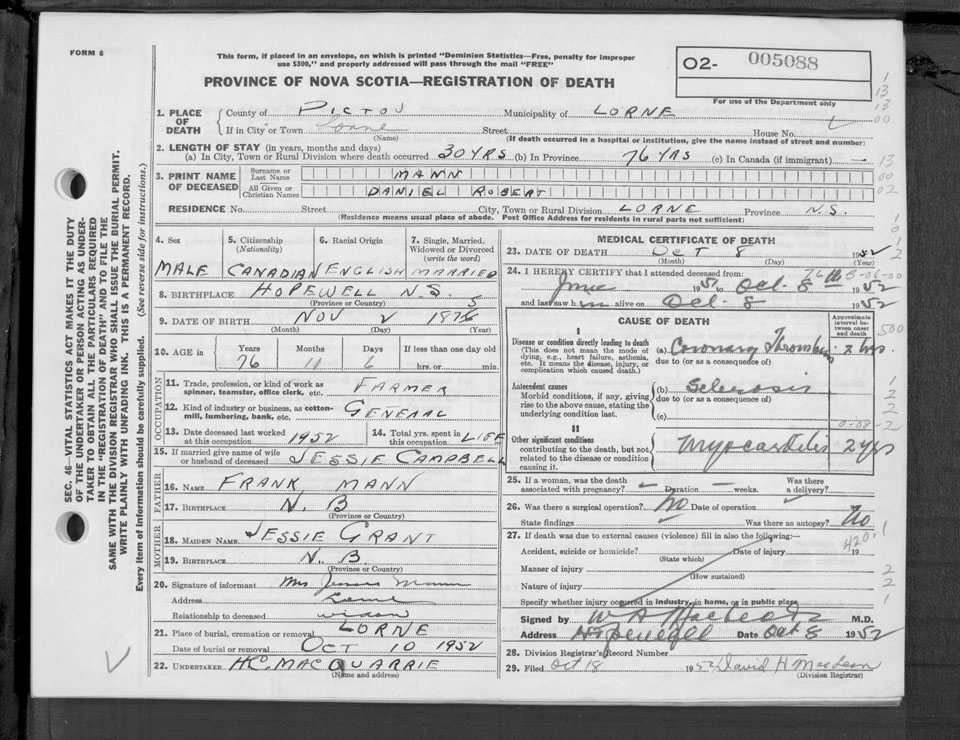 FORM 6
This form, if placed in an envelope, on which is printed "Dominion Statistics—Free, penalty for improper
use $300," and properly addressed will pass through the mail "FREE"
PROVINCE OF NOVA SCOTIA—REGISTRATION OF DEATH
O2- 005088
For use of the Department only
1. PLACE OF DEATH County of PICTOU Municipality of LORNE
If in City or Town Lorne Street House No.
(Name) (If death occurred in a hospital or institution, give the name instead of street and number)
2. LENGTH OF STAY (in years, months and days)
(a) In City, Town or Rural Division where death occurred 30 YRS (b) In Province 76 YRS (c) In Canada (if immigrant) —
3. PRINT NAME OF DECEASED Surname or Last Name MANN
All Given or Christian Names DANIEL ROBERT
RESIDENCE No. Street City, Town or Rural Division LORNE Province N.S.
(Residence means usual place of abode. Post Office Address for residents in rural parts not sufficient)
4. Sex 5. Citizenship (Nationality) 6. Racial Origin 7. Single, Married, Widowed or Divorced (write the word)
MALE CANADIAN ENGLISH MARRIED
8. BIRTHPLACE HOPEWELL N.S.
(Province or Country)
9. DATE OF BIRTH NOV 2
(Month) (Day) (Year)
10. AGE in Years Months Days If less than one day old
76 11 6 hrs. or min.
OCCUPATION
11. Trade, profession, or kind of work as spinner, teamster, office clerk, etc. FARMER
12. Kind of industry or business, as cotton-mill, lumbering, bank, etc. GENERAL
13. Date deceased last worked at this occupation 1952 14. Total yrs. spent in this occupation LIFE
15. If married give name of wife or husband of deceased JESSIE CAMPBELL
FATHER
16. NAME FRANK MANN
17. BIRTHPLACE N. B
(Province or Country)
MOTHER
18. MAIDEN NAME JESSIE GRANT
19. BIRTHPLACE N. B.
(Province or Country)
20. Signature of informant Mrs Jessie Mann
Address Lorne
Relationship to deceased widow
21. Place of burial, cremation or removal LORNE
Date of burial or removal OCT 10 1952
22. UNDERTAKER H.C. MACQUARRIE
(Name and address)
MEDICAL CERTIFICATE OF DEATH
23. DATE OF DEATH OCT 8 1952
(Month) (Day) (Year)
24. I HEREBY CERTIFY that I attended deceased from:
June 1951 to Oct. 8 1952
and last saw him alive on Oct. 8 1952
CAUSE OF DEATH
Approximate interval between onset and death
I
Disease or condition directly leading to death (a) Coronary Thrombosis 2 hrs.
(This does not mean the mode of dying, e.g., heart failure, asthenia, etc. It means the disease, injury, or complication which caused death.)
due to (or as a consequence of)
Antecedent causes (b) Sclerosis
Morbid conditions, if any, giving rise to the above cause, stating the underlying condition last.
due to (or as a consequence of)
(c)
II
Other significant conditions Myocarditis 2 yrs
contributing to the death, but not related to the disease or condition causing it.
25. If a woman, was the death associated with pregnancy? — Duration — weeks. Was there a delivery?
26. Was there a surgical operation? No Date of operation
State findings Was there an autopsy? No
27. If death was due to external causes (violence) fill in also the following:—
Accident, suicide or homicide? Date of injury 19
(State which)
Manner of injury
(How sustained)
Nature of injury
Specify whether injury occurred in industry, in home, or in public place
Signed by W A MacLeod M.D.
Address Hopewell Date Oct 8 1952
28. Division Registrar's Record Number
29. Filed Oct 18 1952 David H MacLean
(Division Registrar)
SEC. 46—VITAL STATISTICS ACT MAKES IT THE DUTY
OF THE UNDERTAKER OR PERSON ACTING AS UNDER-
TAKER TO OBTAIN ALL THE PARTICULARS REQUIRED
IN THE "REGISTRATION OF DEATH" AND TO FILE THE
SAME WITH THE DIVISION REGISTRAR WHO SHALL ISSUE THE BURIAL PERMIT.
WRITE PLAINLY WITH UNFADING INK. THIS IS A PERMANENT RECORD.
Every item of information should be carefully supplied. (See reverse side for instructions.)